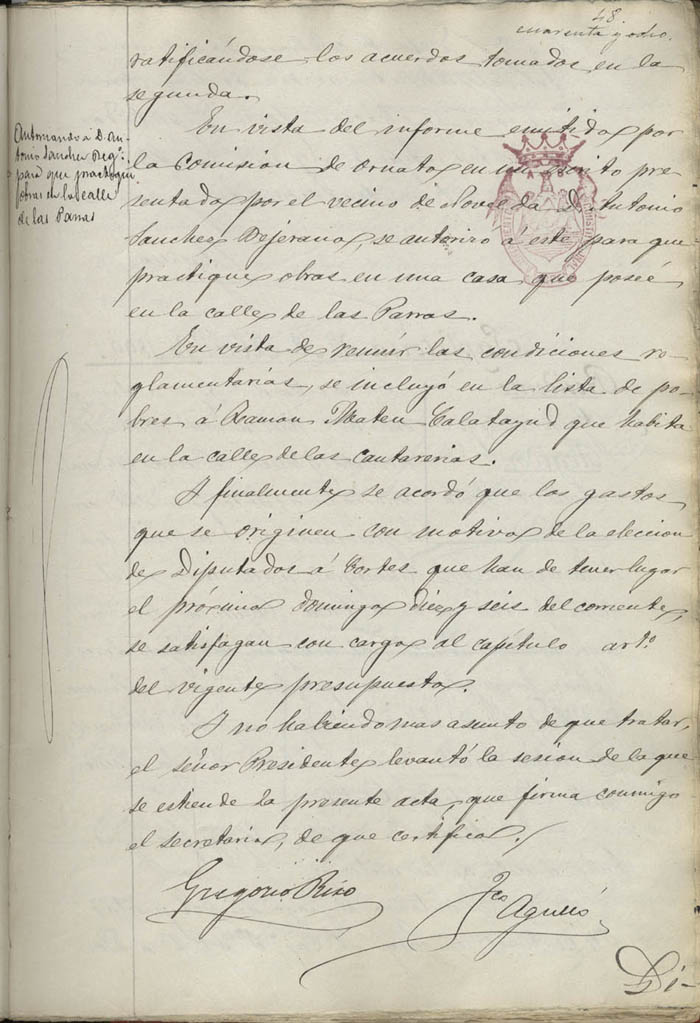 48.
cuarenta y ocho.
ratificándose los acuerdos tomados en la
segunda.
Autorizando á D. An-
tonio Sanchez Bej.º
para que practique
obras en la calle
de las Parras
En vista del informe emitido por
la Comisión de Ornato, en un escrito pre-
sentado por el vecino de Novelda D. Antonio
Sanchez Bejerano, se autorizó á este para que
practique obras en una casa que posée
en la calle de las Parras.
En vista de reunir las condiciones re-
glamentarias, se incluyó en la lista de po-
bres á Ramon Mateu Calatayud que habita
en la calle de las Cantarerias.
Y finalmente se acordó que los gastos
que se originen con motivo de la eleccion
de Diputados á Cortes que han de tener lugar
el próximo domingo diez y seis del corriente,
se satisfagan con cargo al capítulo art.º
del vigente presupuesto.
Y no habiendo mas asunto de que tratar,
el señor Presidente levantó la sesión de la que
se estiende la presente acta, que firma conmigo
el secretario, de que certifico./
Gregorio Rizo
Fco Agulló
Di-